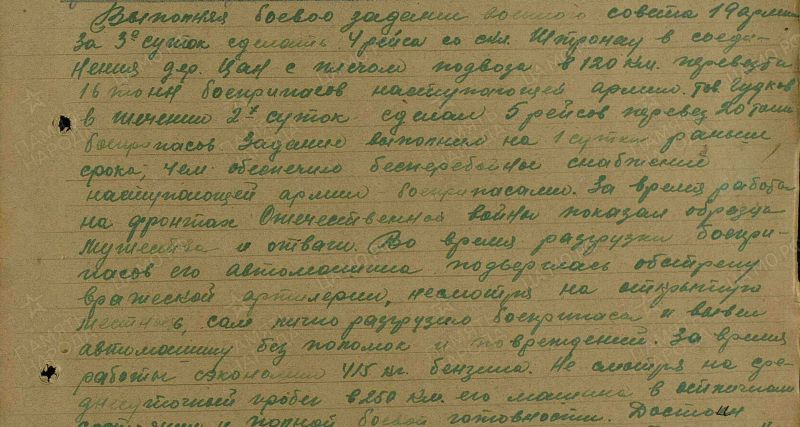 Выполняя боевое задание военного совета 19 армии
За 3е суток сделать 4 рейса со скл. Штронау в соеди-
нения дер. Цан с плечом подвоза в 120 км. перевезти
16 тонн боеприпасов наступающей армии. Тов. Гудков
в течении 2х суток сделал 5 рейсов перевез 20 тонн
боеприпасов. Задание выполнил на 1 сутки раньше
срока, чем обеспечило бесперебойное снабжение
наступающей армии боеприпасами. За время работы
на фронтах Отечественной войны показал образцы
мужества и отваги. Во время разгрузки боепри-
пасов его автомашина подверглась обстрелу
вражеской артилерии, несмотря на открытую
местность, сам лично разгрузил боеприпаса и вывел
автомашину без поломок и повреждений. За время
работы сэкономил 415 кг. бензина. Не смотря на сре-
днесуточный пробег в 250 км. его машина в отличном
состоянии и полной боевой готовности. Достоин